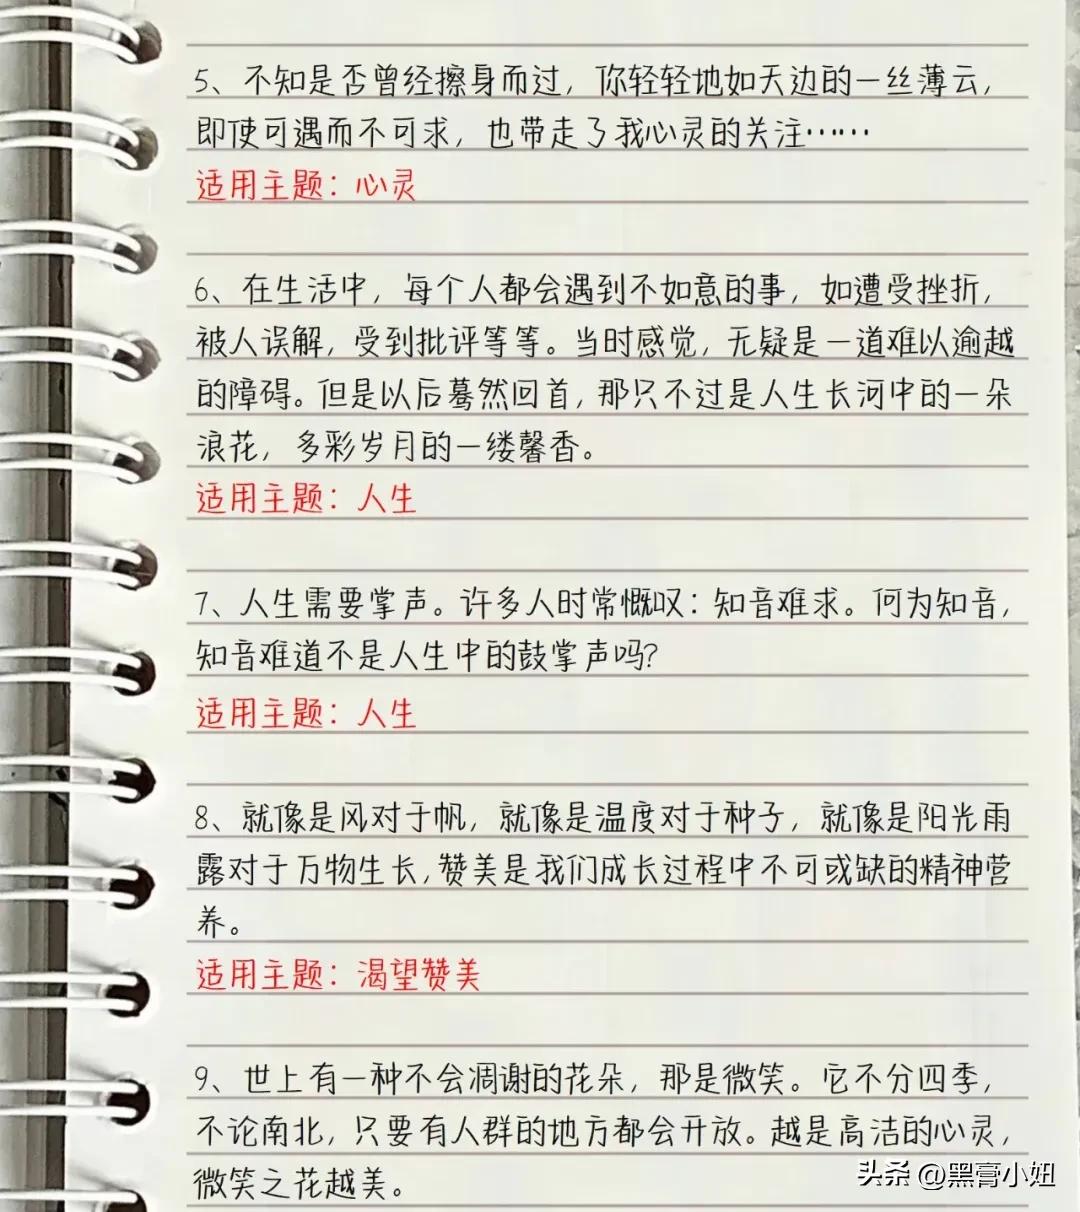 5、不知是否曾经擦身而过，你轻轻地如天边的一丝薄云，
即使可遇而不可求，也带走了我心灵的关注……
适用主题：心灵
6、在生活中，每个人都会遇到不如意的事，如遭受挫折，
被人误解，受到批评等等。当时感觉，无疑是一道难以逾越
的障碍。但是以后蓦然回首，那只不过是人生长河中的一朵
浪花，多彩岁月的一缕馨香。
适用主题：人生
7、人生需要掌声。许多人时常慨叹：知音难求。何为知音，
知音难道不是人生中的鼓掌声吗？
适用主题：人生
8、就像是风对于帆，就像是温度对于种子，就像是阳光雨
露对于万物生长，赞美是我们成长过程中不可或缺的精神营
养。
适用主题：渴望赞美
9、世上有一种不会凋谢的花朵，那是微笑。它不分四季，
不论南北，只要有人群的地方都会开放。越是高洁的心灵，
微笑之花越美。
头条 @黑膏小妞